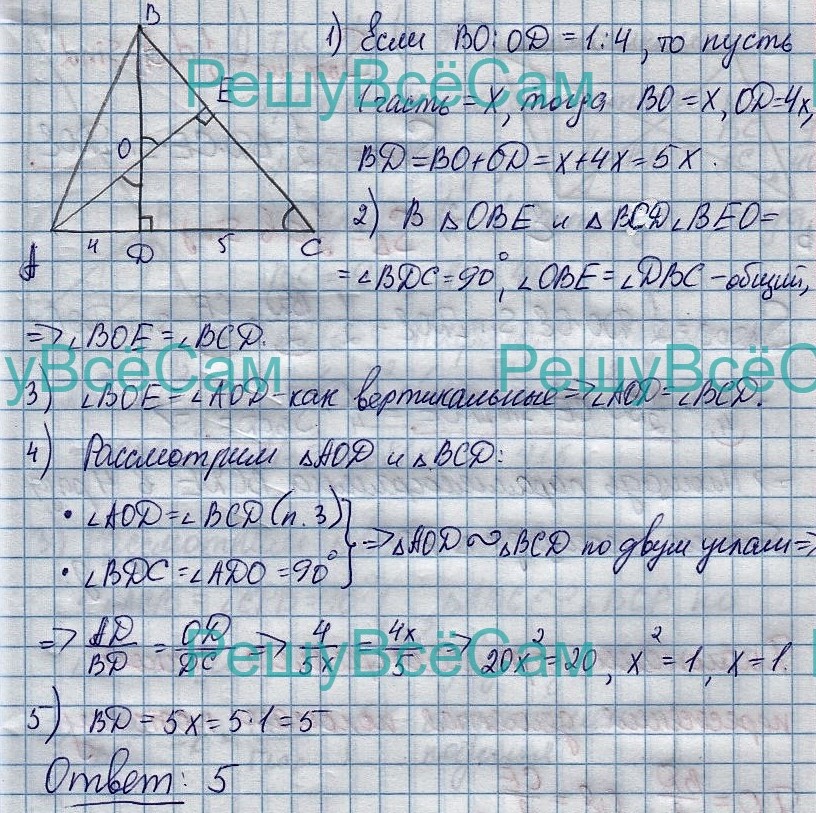 B
E
O
A
4
D
5
C
1) Если BO:OD = 1:4, то пусть
1 часть = x, тогда BO = x, OD = 4x,
BD = BO + OD = x + 4x = 5x.
2) В △OBE и △BCD ∠BEO =
= ∠BDC = 90°, ∠OBE = ∠DBC - общий,
=> ∠BOE = ∠BCD.
3) ∠BOE = ∠AOD - как вертикальные => ∠AOD = ∠BCD.
4) Рассмотрим △AOD и △BCD:
• ∠AOD = ∠BCD (п. 3)
• ∠BDC = ∠ADO = 90°
} => △AOD ~ △BCD по двум углам =>
=> AD/BD = OD/DC => 4/5x = 4x/5 => 20x² = 20, x² = 1, x = 1.
5) BD = 5x = 5·1 = 5
Ответ: 5
РешуВсёСам
уВсёСам
РешуВсёС
РешуВсёСам